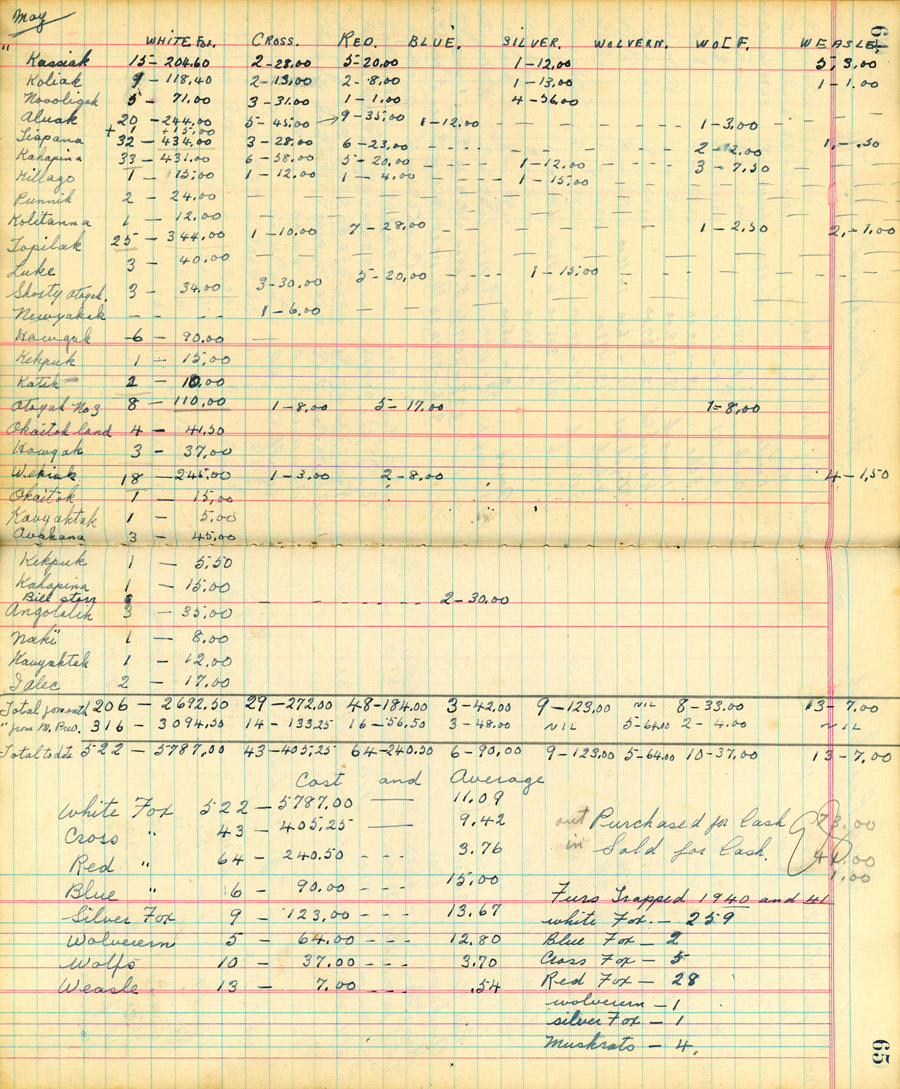 May
64
" WHITE FOX. CROSS. RED. BLUE. SILVER. WOLVERN. WOLF. WEASLE.
Kassiak 15 - 204.60 2 - 28.00 5 - 20.00 1 - 12.00 5, 3.00
Koliak 9 - 118.40 2 - 13.00 2 - 8.00 1 - 13.00 1 - 1.00
Novoligak 5 - 71.00 3 - 31.00 1 - 1.00 4 - 56.00
Aluak 20 - 244.00 5 - 45.00 → 9 - 35.00 1 - 12.00 1 - 3.00 — —
+ 1 + 15.00
Tiapana 32 - 434.00 3 - 28.00 6 - 23.00 - - - - 2 - 2.00 1, - .50
Kahapina 33 - 431.00 6 - 58.00 5 - 20.00 - - - - 1 - 12.00 - - - 3 - 7.50
Hillago 1 - 15.00 1 - 12.00 1 - 4.00 - - - 1 - 15.00 - - -
Punnik 2 - 24.00
Kolitanna 1 - 12.00
Topilak 25 - 344.00 1 - 10.00 7 - 28.00 1 - 2.50 2, - 1.00
Luke 3 - 40.00
Shosty otoyak. 3 - 34.00 3 - 30.00 5 - 20,00 - - - - 1 - 15.00
Newyakak - - - - 1 - 6.00
Howgak 6 - 90.00
Kekpuk 1 - 15.00
Katik 2 - 10.00
Otoyak No 3 8 - 110.00 1 - 8.00 5 - 17.00 1 - 8.00
Okaitok land 4 - 41.50
Howgak 3 - 37.00
Wekiak 18 - 245.00 1 - 3.00 2 - 8.00 4 - 1,50
Okaitok 1 - 15,00
Kavyaktak 1 - 5.00
Avakana 3 - 45.00
Kekpuk 1 - 5.50
Kahapina 1 - 15.00
Bill storr - - - - - - 2 - 30.00
Angolalik 3 - 35.00
Naki 1 - 8.00
Kavyaktak 1 - 12.00
Ialec 2 - 17.00
Total for month 206 - 2692.50 29 - 272.00 48 - 184.00 3 - 42.00 9 - 123.00 NIL 8 - 33.00 13 - 7.00
" from M. Prev. 316 - 3094.50 14 - 133.25 16 - 56.50 3 - 48.00 NIL 5 - 64.00 2 - 4.00 NIL
Total to date 522 - 5787.00 43 - 405.25 64 - 240.50 6 - 90.00 9 - 123.00 5 - 64.00 10 - 37.00 13 - 7.00
Cost and Average
White Fox 522 - 5787.00 —— 11.09
Cross " 43 - 405.25 —— 9.42
Red " 64 - 240.50 - - - 3.76
Blue " 6 - 90.00 - - - 15.00
Silver Fox 9 - 123.00 - - - 13.67
Wolverern 5 - 64.00 - - - 12.80
Wolfs 10 - 37.00 - - - 3.70
Weasle 13 - 7.00 - - - .54
out Purchased for Cash 73.00
in Sold for Cash. 44.00
1.00
Furs Trapped 1940 and 41
white Fox. - 259
Blue Fox - 2
Cross Fox - 5
Red Fox - 28
wolverern - 1
silver Fox - 1
Muskrats - 4.
65